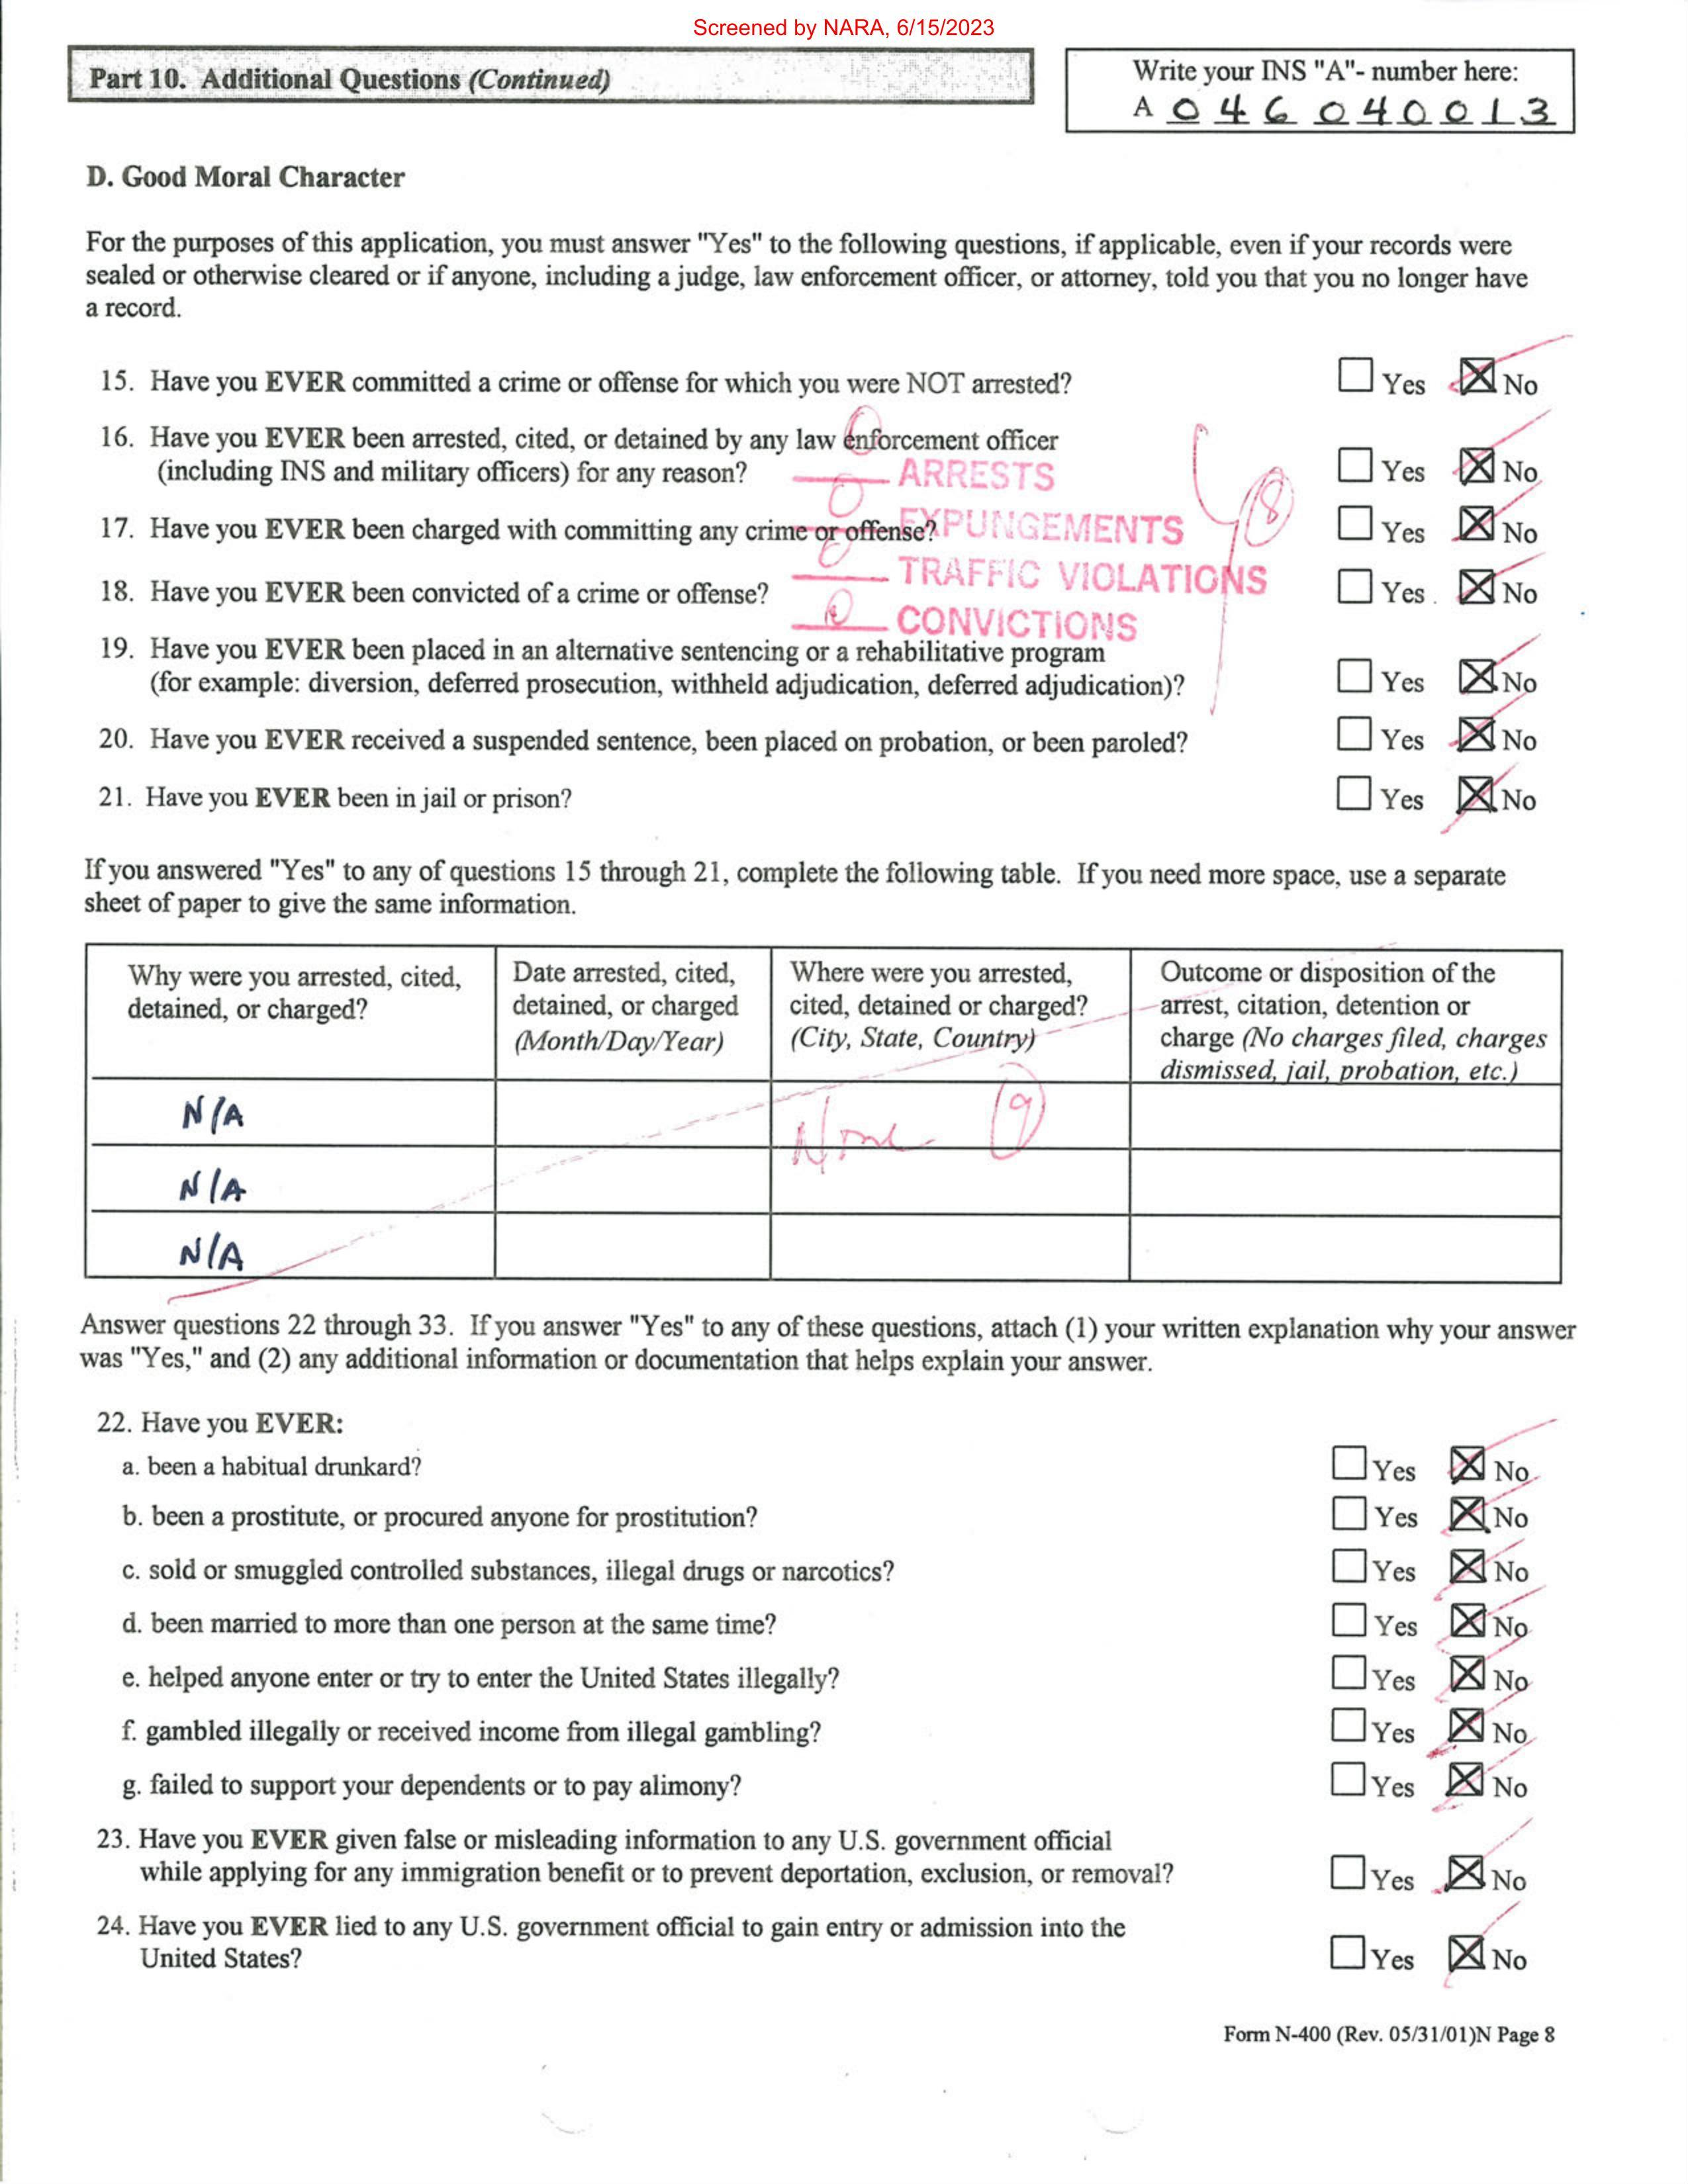 Screened by NARA, 6/15/2023
Part 10. Additional Questions (Continued)
Write your INS "A"- number here:
A 0 4 6 0 4 0 0 1 3
D. Good Moral Character
For the purposes of this application, you must answer "Yes" to the following questions, if applicable, even if your records were
sealed or otherwise cleared or if anyone, including a judge, law enforcement officer, or attorney, told you that you no longer have
a record.
15. Have you EVER committed a crime or offense for which you were NOT arrested? Yes No
16. Have you EVER been arrested, cited, or detained by any law enforcement officer
(including INS and military officers) for any reason? Yes No
0 ARRESTS
17. Have you EVER been charged with committing any crime or offense? Yes No
0 EXPUNGEMENTS
8
0 TRAFFIC VIOLATIONS
18. Have you EVER been convicted of a crime or offense? Yes No
0 CONVICTIONS
19. Have you EVER been placed in an alternative sentencing or a rehabilitative program
(for example: diversion, deferred prosecution, withheld adjudication, deferred adjudication)? Yes No
20. Have you EVER received a suspended sentence, been placed on probation, or been paroled? Yes No
21. Have you EVER been in jail or prison? Yes No
If you answered "Yes" to any of questions 15 through 21, complete the following table. If you need more space, use a separate
sheet of paper to give the same information.
Why were you arrested, cited,
detained, or charged?
Date arrested, cited,
detained, or charged
(Month/Day/Year)
Where were you arrested,
cited, detained or charged?
(City, State, Country)
Outcome or disposition of the
arrest, citation, detention or
charge (No charges filed, charges
dismissed, jail, probation, etc.)
N/A
None 9
N/A
N/A
Answer questions 22 through 33. If you answer "Yes" to any of these questions, attach (1) your written explanation why your answer
was "Yes," and (2) any additional information or documentation that helps explain your answer.
22. Have you EVER:
a. been a habitual drunkard? Yes No
b. been a prostitute, or procured anyone for prostitution? Yes No
c. sold or smuggled controlled substances, illegal drugs or narcotics? Yes No
d. been married to more than one person at the same time? Yes No
e. helped anyone enter or try to enter the United States illegally? Yes No
f. gambled illegally or received income from illegal gambling? Yes No
g. failed to support your dependents or to pay alimony? Yes No
23. Have you EVER given false or misleading information to any U.S. government official
while applying for any immigration benefit or to prevent deportation, exclusion, or removal? Yes No
24. Have you EVER lied to any U.S. government official to gain entry or admission into the
United States? Yes No
Form N-400 (Rev. 05/31/01)N Page 8